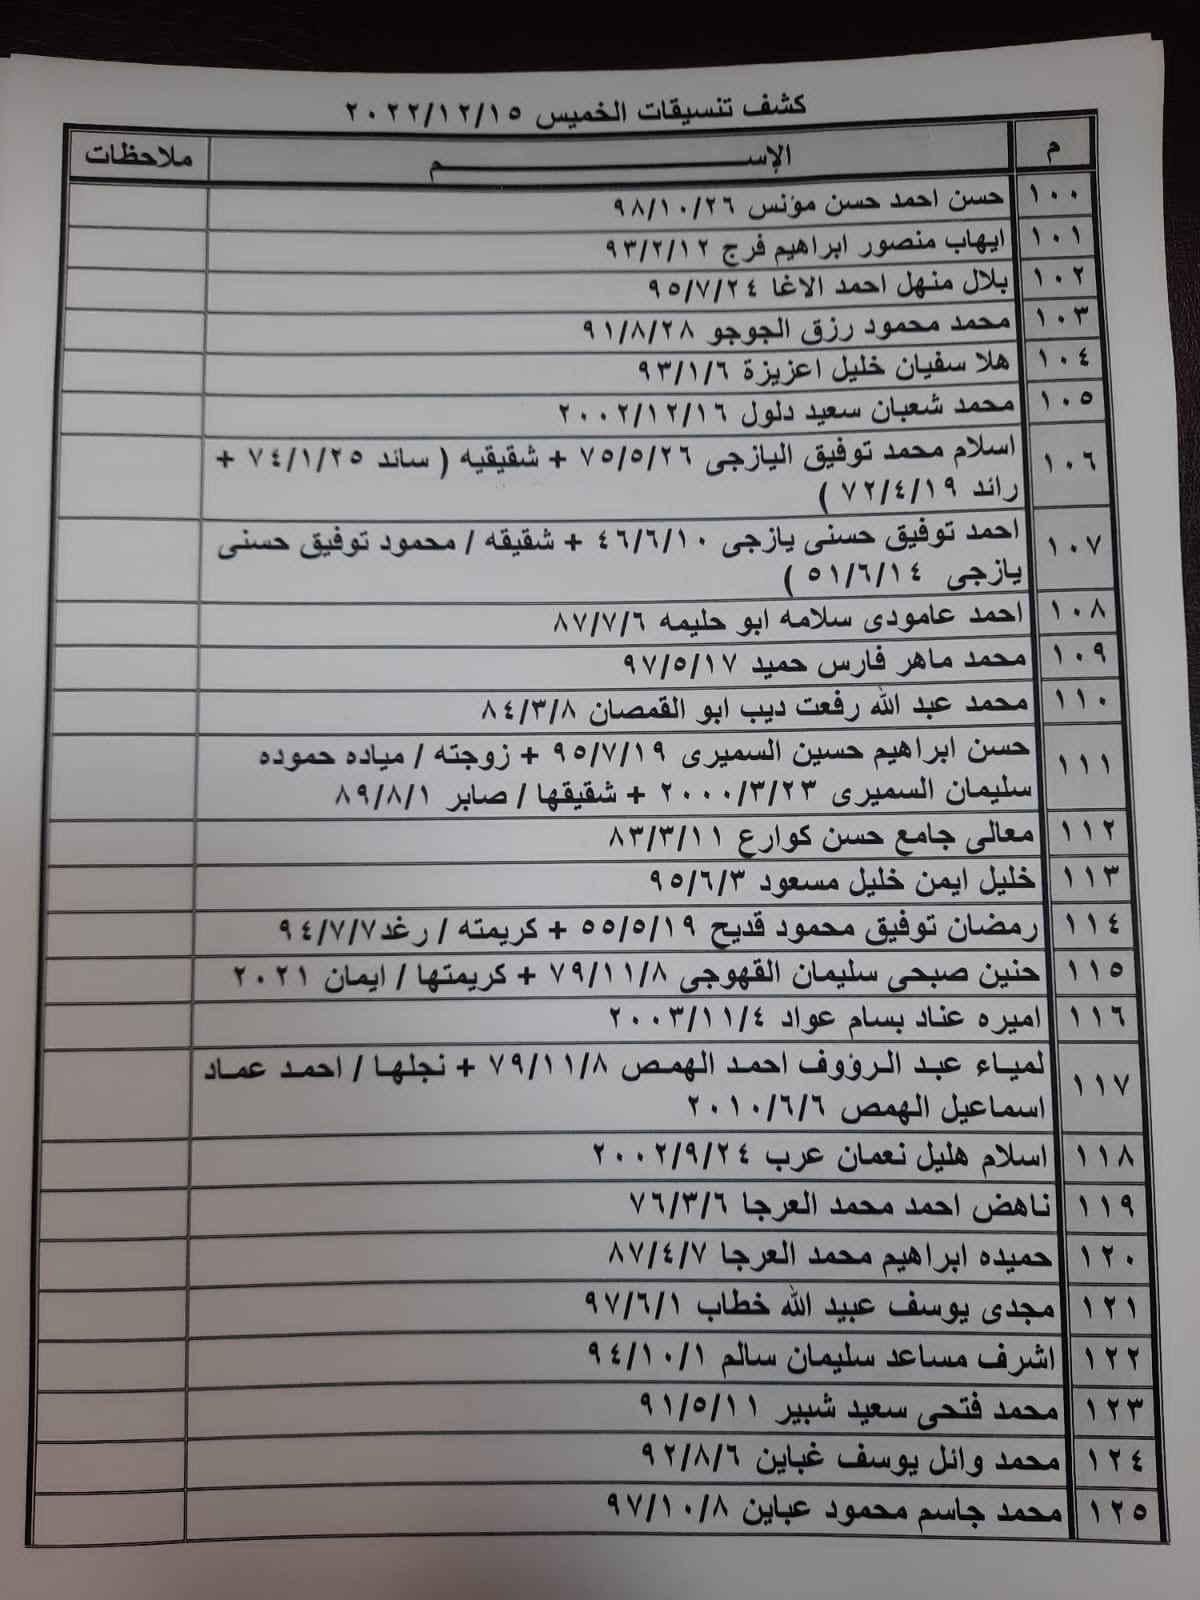 كشف تنسيقات الخميس ٢٠٢٢/١٢/١٥
م الإســــــــم ملاحظات
١٠٠ حسن احمد حسن مؤنس ٩٨/١٠/٢٦
١٠١ ايهاب منصور ابراهيم فرج ٩٣/٢/١٢
١٠٢ بلال منهل احمد الاغا ٩٥/٧/٢٤
١٠٣ محمد محمود رزق الجوجو ٩١/٨/٢٨
١٠٤ هلا سفيان خليل اعزيزة ٩٣/١/٦
١٠٥ محمد شعبان سعيد دلول ٢٠٠٢/١٢/١٦
١٠٦ اسلام محمد توفيق اليازجى ٧٥/٥/٢٦ + شقيقيه ( سائد ٧٤/١/٢٥ +
رائد ٧٢/٤/١٩ )
١٠٧ احمد توفيق حسنى يازجى ٤٦/٦/١٠ + شقيقه / محمود توفيق حسنى
يازجى ٥١/٦/١٤ )
١٠٨ احمد عامودى سلامه ابو حليمه ٨٧/٧/٦
١٠٩ محمد ماهر فارس حميد ٩٧/٥/١٧
١١٠ محمد عبد الله رفعت ديب ابو القمصان ٨٤/٣/٨
١١١ حسن ابراهيم حسين السميرى ٩٥/٧/١٩ + زوجته / مياده حموده
سليمان السميرى ٢٠٠٠/٣/٢٣ + شقيقها / صابر ٨٩/٨/١
١١٢ معالى جامع حسن كوارع ٨٣/٣/١١
١١٣ خليل ايمن خليل مسعود ٩٥/٦/٣
١١٤ رمضان توفيق محمود قديح ٥٥/٥/١٩ + كريمته / رغد ٩٤/٧/٧
١١٥ حنين صبحى سليمان القهوجى ٧٩/١١/٨ + كريمتها / ايمان ٢٠٢١
١١٦ اميره عناد بسام عواد ٢٠٠٣/١١/٤
١١٧ لمياء عبد الرؤوف احمد الهمص ٧٩/١١/٨ + نجلها / احمد عماد
اسماعيل الهمص ٢٠١٠/٦/٦
١١٨ اسلام هليل نعمان عرب ٢٠٠٢/٩/٢٤
١١٩ ناهض احمد محمد العرجا ٧٦/٣/٦
١٢٠ حميده ابراهيم محمد العرجا ٨٧/٤/٧
١٢١ مجدى يوسف عبيد الله خطاب ٩٧/٦/١
١٢٢ اشرف مساعد سليمان سالم ٩٤/١٠/١
١٢٣ محمد فتحى سعيد شبير ٩١/٥/١١
١٢٤ محمد وائل يوسف غباين ٩٢/٨/٦
١٢٥ محمد جاسم محمود عباين ٩٧/١٠/٨